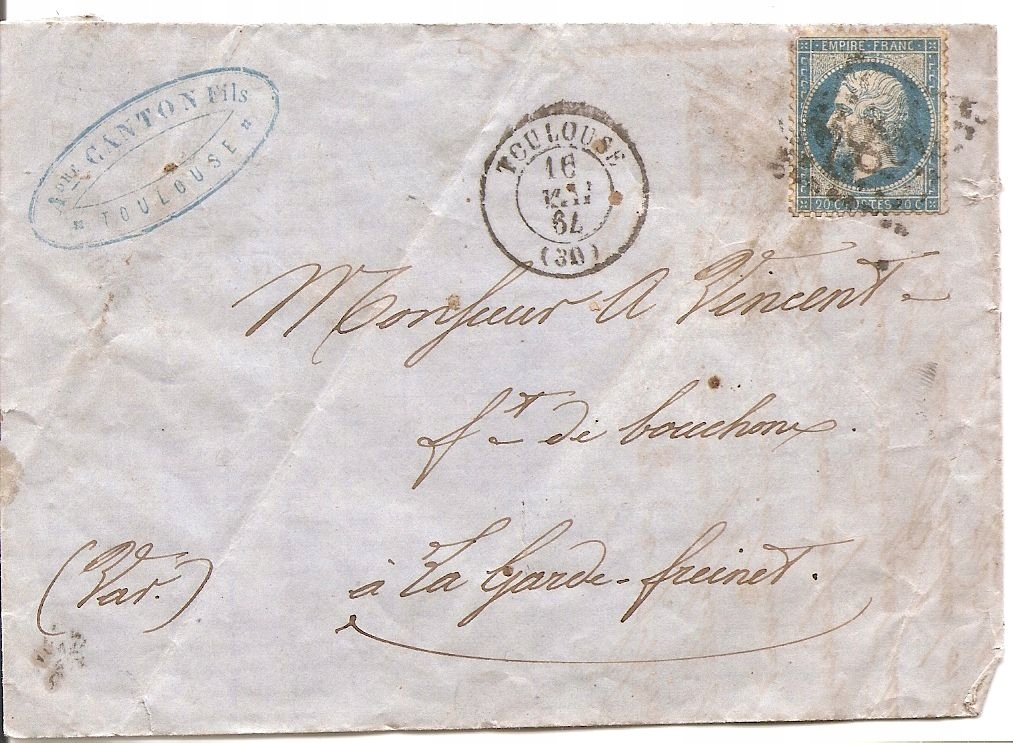 CANTON Fils
TOULOUSE
TOULOUSE
16
MAI
64
(30)
EMPIRE FRANC
20 C POSTES 20 C
Monsieur A Vincent
ft de bouchons.
à La Garde-freinet.
(Var.)